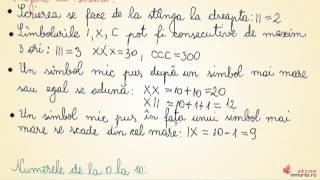 Scrierea se face de la stânga la dreapta: II = 2
Simbolurile I, X, C pot fi consecutive de maxim
3 ori: III = 3 XXX = 30, CCC = 300
Un simbol mic pus după un simbol mai mare
sau egal se adună: XX = 10 + 10 = 20
XII = 10 + 1 + 1 = 12
Un simbol mic pus în fața unui simbol mai
mare se scade din cel mare: IX = 10 - 1 = 9
Numerele de la 0 la 10: